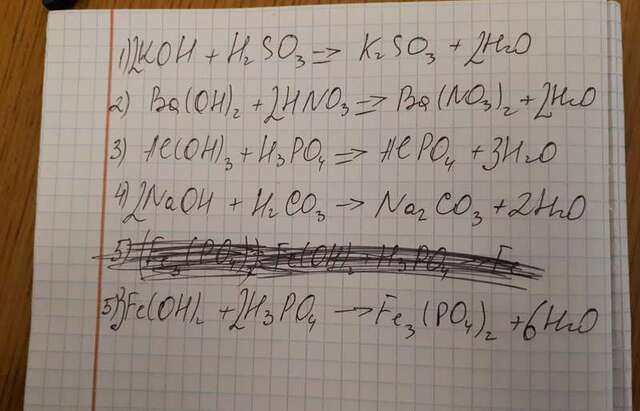 1) 2KOH + H₂SO₃ => K₂SO₃ + 2H₂O
2) Ba(OH)₂ + 2HNO₃ => Ba(NO₃)₂ + 2H₂O
3) Al(OH)₃ + H₃PO₄ => AlPO₄ + 3H₂O
4) 2NaOH + H₂CO₃ → Na₂CO₃ + 2H₂O
5) (Fe₃(PO₄)₂) Fe(OH)₂ + H₃PO₄ Fe
5) 3Fe(OH)₂ + 2H₃PO₄ → Fe₃(PO₄)₂ + 6H₂O